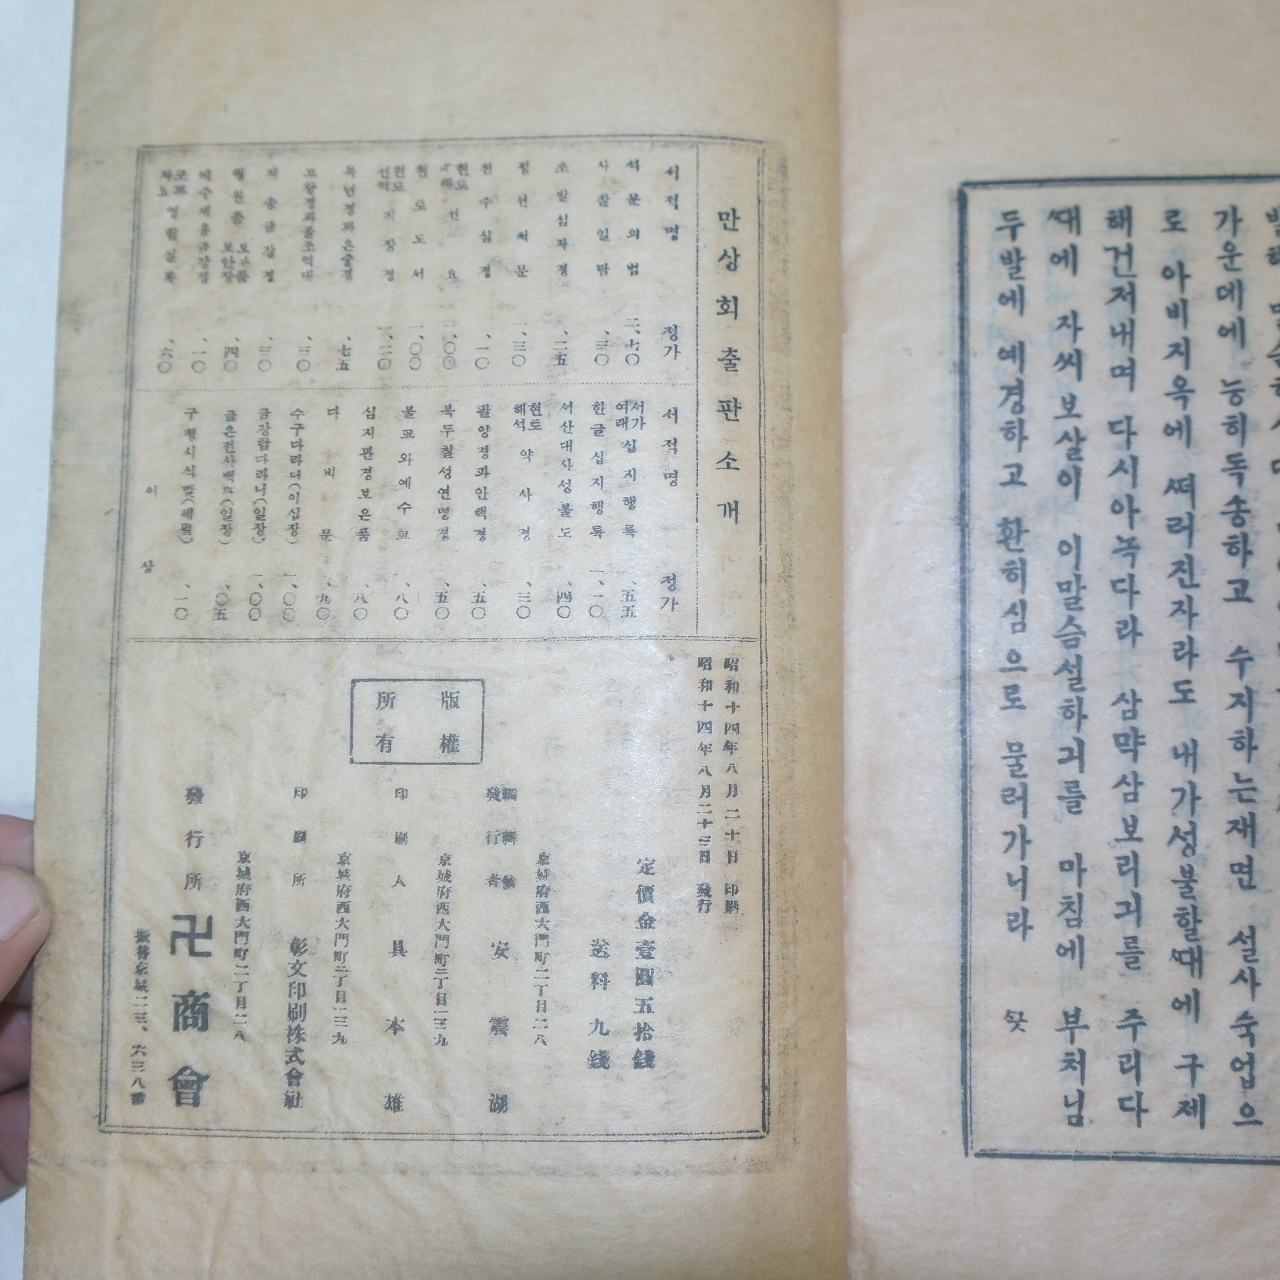 가운데에 능히독송하고 수지하는재면 설사숙업으
로 아비지옥에 ᄯᅥ러진자라도 내가성불할ᄯᅢ에 구제
해건저내며 다시아녹다라 삼먁삼보리긔를 주리다
ᄯᅢ에 자씨보살이 이말슴설하긔를 마침에 부처님
두발에 예경하고 환히심으로 물러가니라 ᄭᅳᆺ
만상회출판소개
서적명 정가
석문의범 二、七〇
사찰일람 、三〇
초발심자경 、二五
정선처문 、三〇
천수심경 、一〇
현토 선요 一、〇〇
현토도서 一、〇〇
현토 선역 지장경 一、二〇
목년경과은중경 、七五
고왕경과불조역대 、三〇
지송금강경 、三〇
행원품 보문품 보안장 、四〇
예수재용금강경 、一〇
영험실록 、六〇
서적명 정가
서가여래 십지행록 、五五
한글십지행록 一、一〇
서산대사성불도 、四〇
현토해석 약사경 、三〇
팔양경과안택경 、五〇
북두칠성연명경 、五〇
불교와예수교 、八〇
십지관경보은품 、八〇
다비문 、九〇
수구다라니(이십장) 一、〇〇
금강탑다라니(일장) 一、〇〇
금은전사백(일장) 、〇五
구병시식(세월) 、一〇
이상
昭和十四年八月二十日 印刷
昭和十四年八月二十三日 發行
定價金壹圓五拾錢
送料九錢
京城府西大門町二丁目二八
編輯兼發行者 安震湖
京城府西大門町二丁目一三九
印刷人 具本雄
京城府西大門町二丁目一三九
印刷所 彰文印刷株式會社
京城府西大門町二丁目二八
發行所 卍商會
振替京城二三、六三八番
版權所有